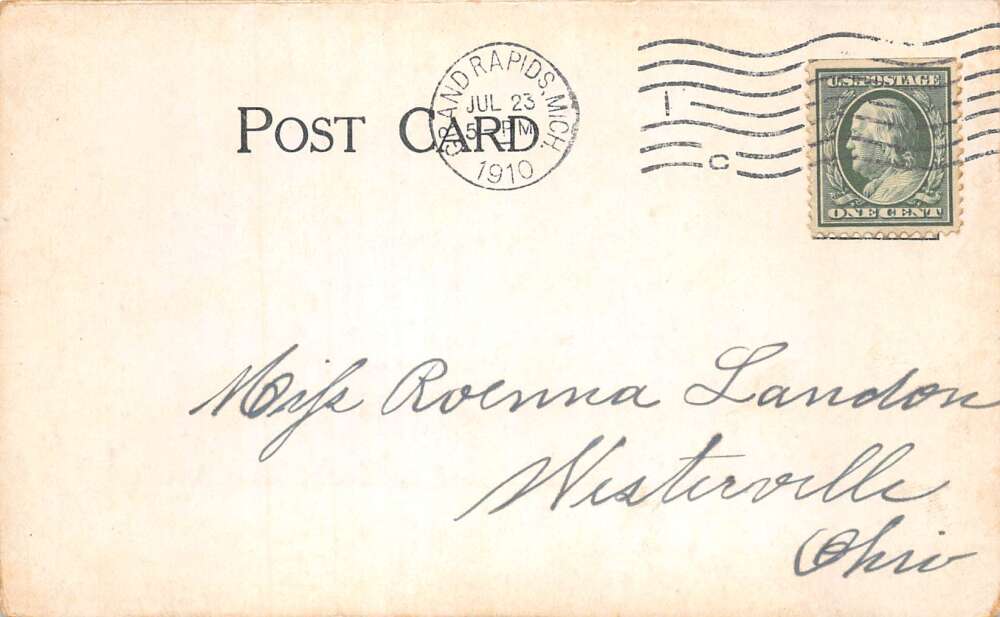 POST CARD
GRAND RAPIDS, MICH.
JUL 23
5 - PM
1910
1
C
U.S. POSTAGE
ONE CENT
Miss Roenna Landon
Westerville
Ohio